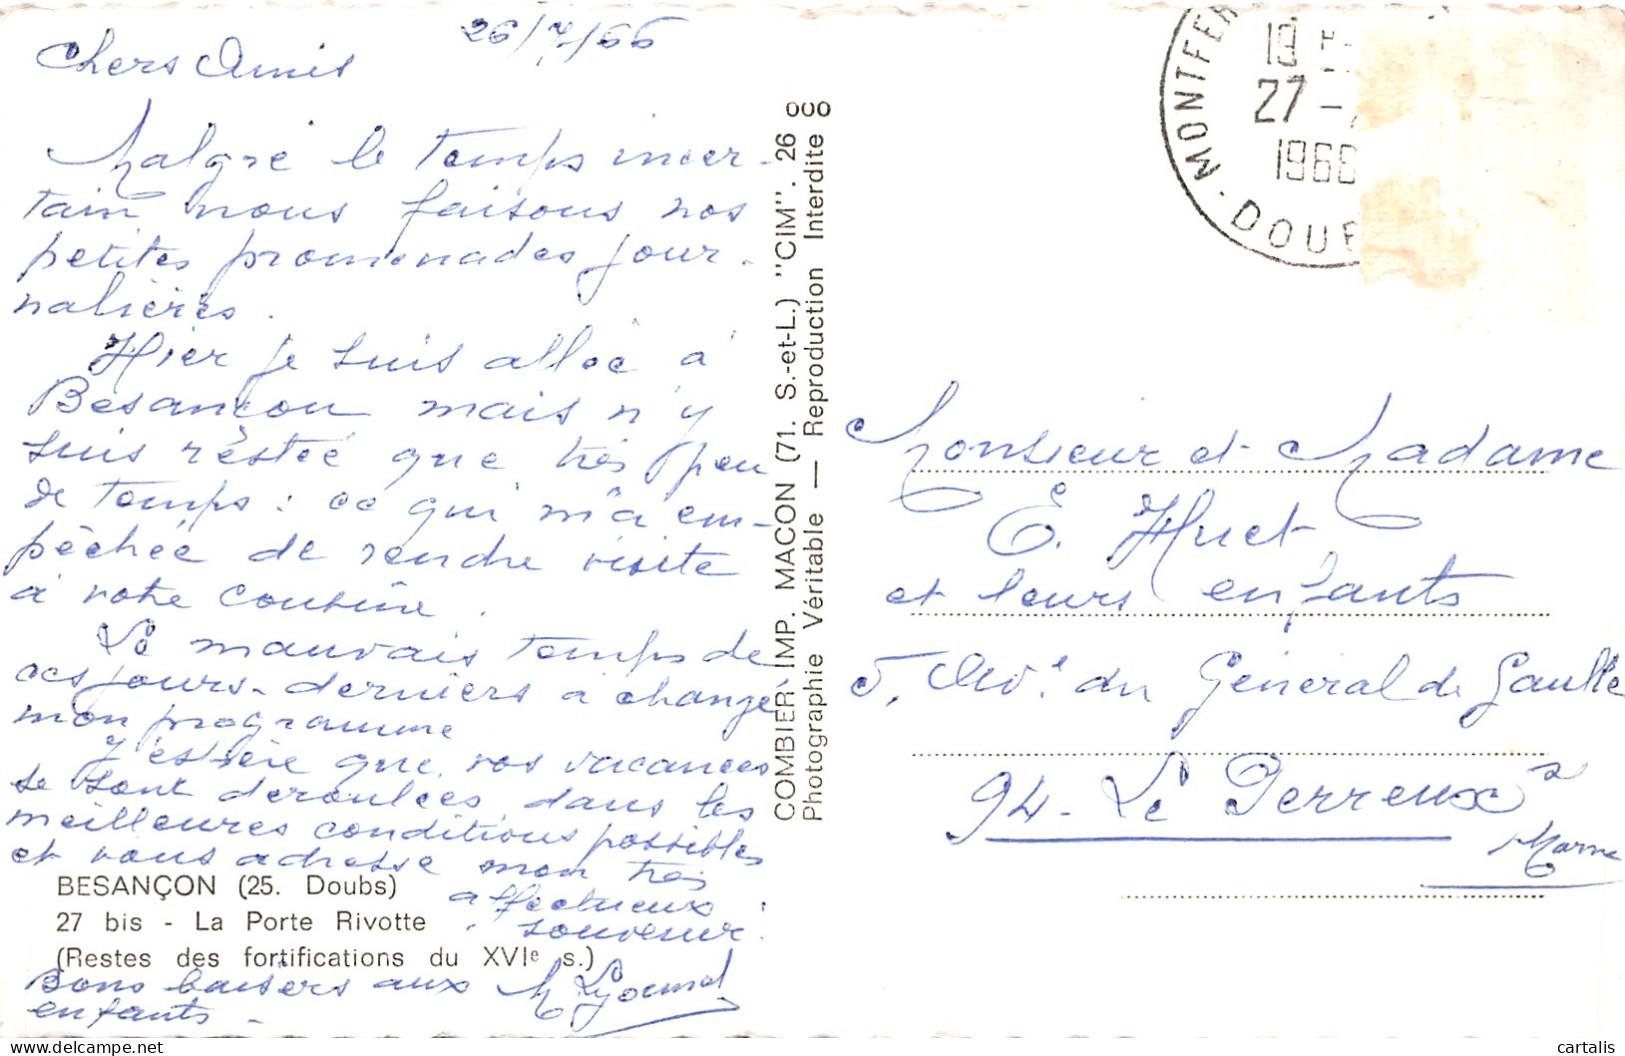 26/7/66
Chers Amis
Malgré le temps incer-
tain nous faisons nos
petites promenades jour-
nalières.
Hier je suis allée à
Besançon mais n'y
suis restée que très peu
de temps : ce qui m'a em-
pêchée de rendre visite
à votre cousine.
Le mauvais temps de
ces jours-derniers a changé
mon programme
J'espère que vos vacances
se sont déroulées dans les
meilleures conditions possibles
et vous adresse mon très
affectueux
souvenir.
BESANÇON (25. Doubs)
27 bis - La Porte Rivotte
(Restes des fortifications du XVIe s.)
Bons baisers aux
enfants -
COMBIER IMP. MACON (71. S.-et-L.) "CIM". 26
Photographie Véritable — Reproduction Interdite
MONTFER
19 H
27 -
1966
DOUB
Monsieur et Madame
E. Huet
et leurs enfants
5, Av. du Général de Gaulle
94 - Le Perreux s
Marne
cartalis
delcampe.net